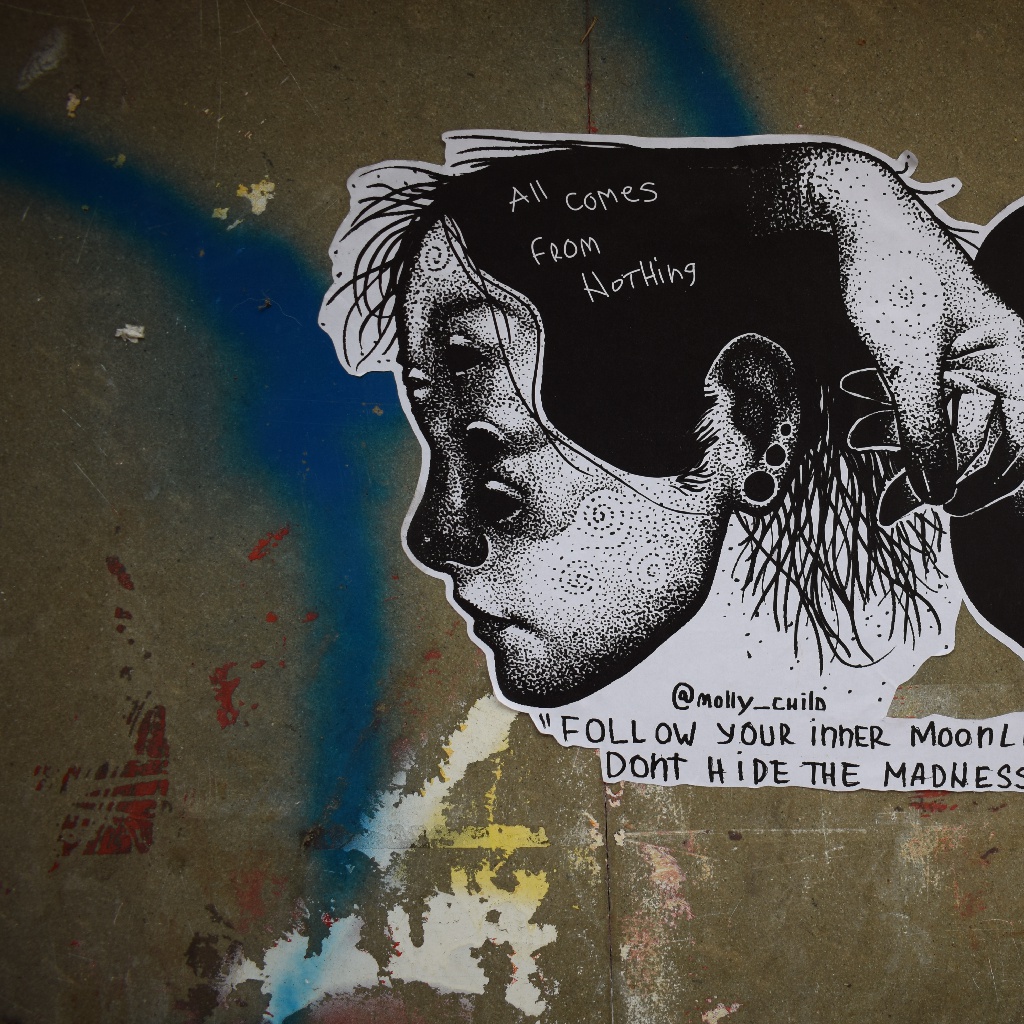 All comes
FROM
NoTHing
@molly_CHILD
"FOLLOW YOUR inner MoonL
DonT HiDE THE MADNESS